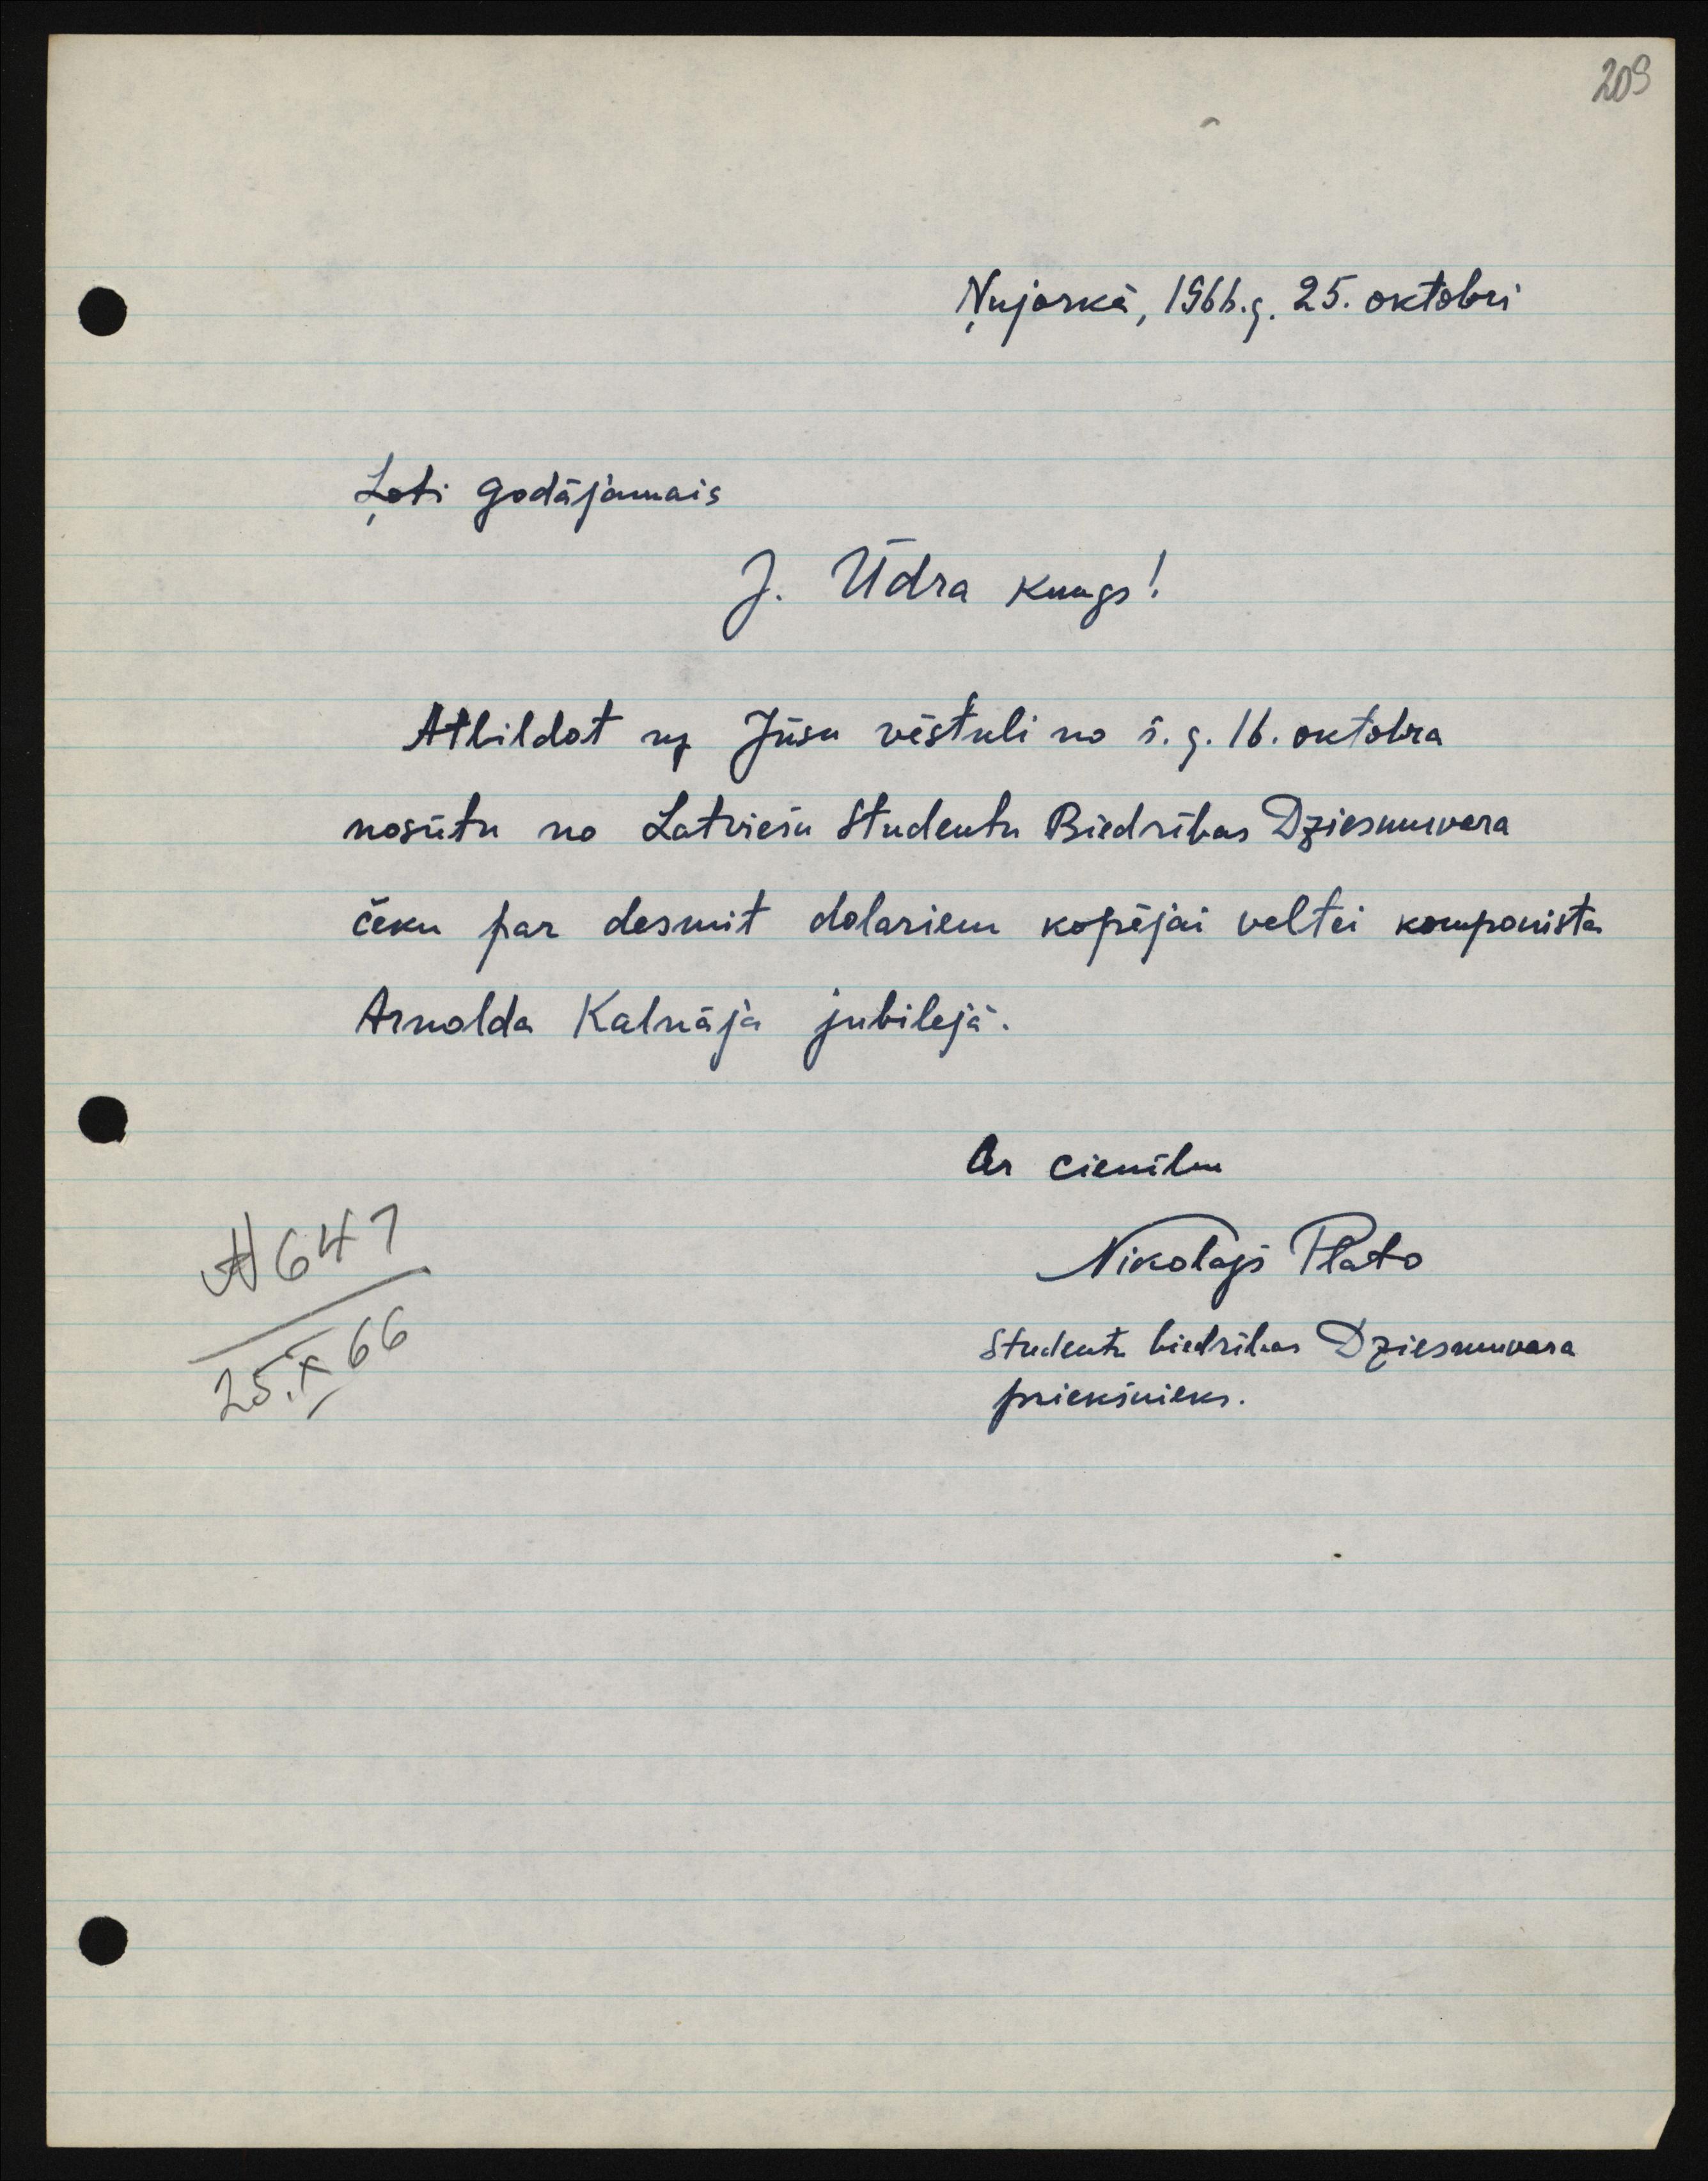 209
Ņujorkā, 1966.g. 25. oktobri
Ļoti godājamais
J. Ūdra kungs!
Atbildot uz Jūsu vēstuli no š.g. 16. oktobra
nosūtu no Latviešu Studentu Biedrības Dziesmuvara
čeku par desmit dolariem kopējai veltei komponista
Arnolda Kalnāja jubilejā.
Ar cieņību
Nikolajs Plato
Studentu biedrības Dziesmuvara
priekšnieks.
# 647
25.X 66